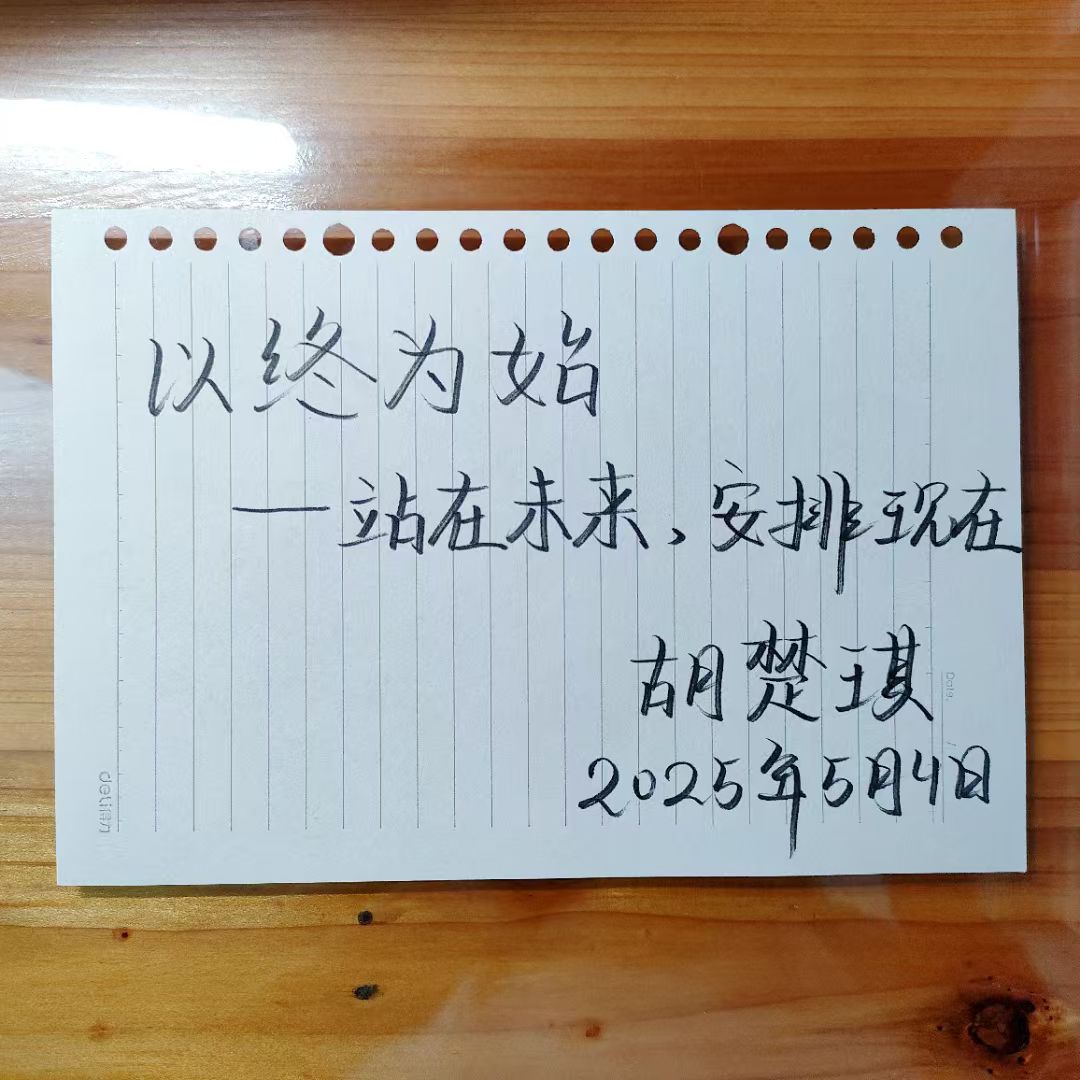 以终为始
—站在未来、安排现在
胡楚琪
2025年5月4日
Date.
deli